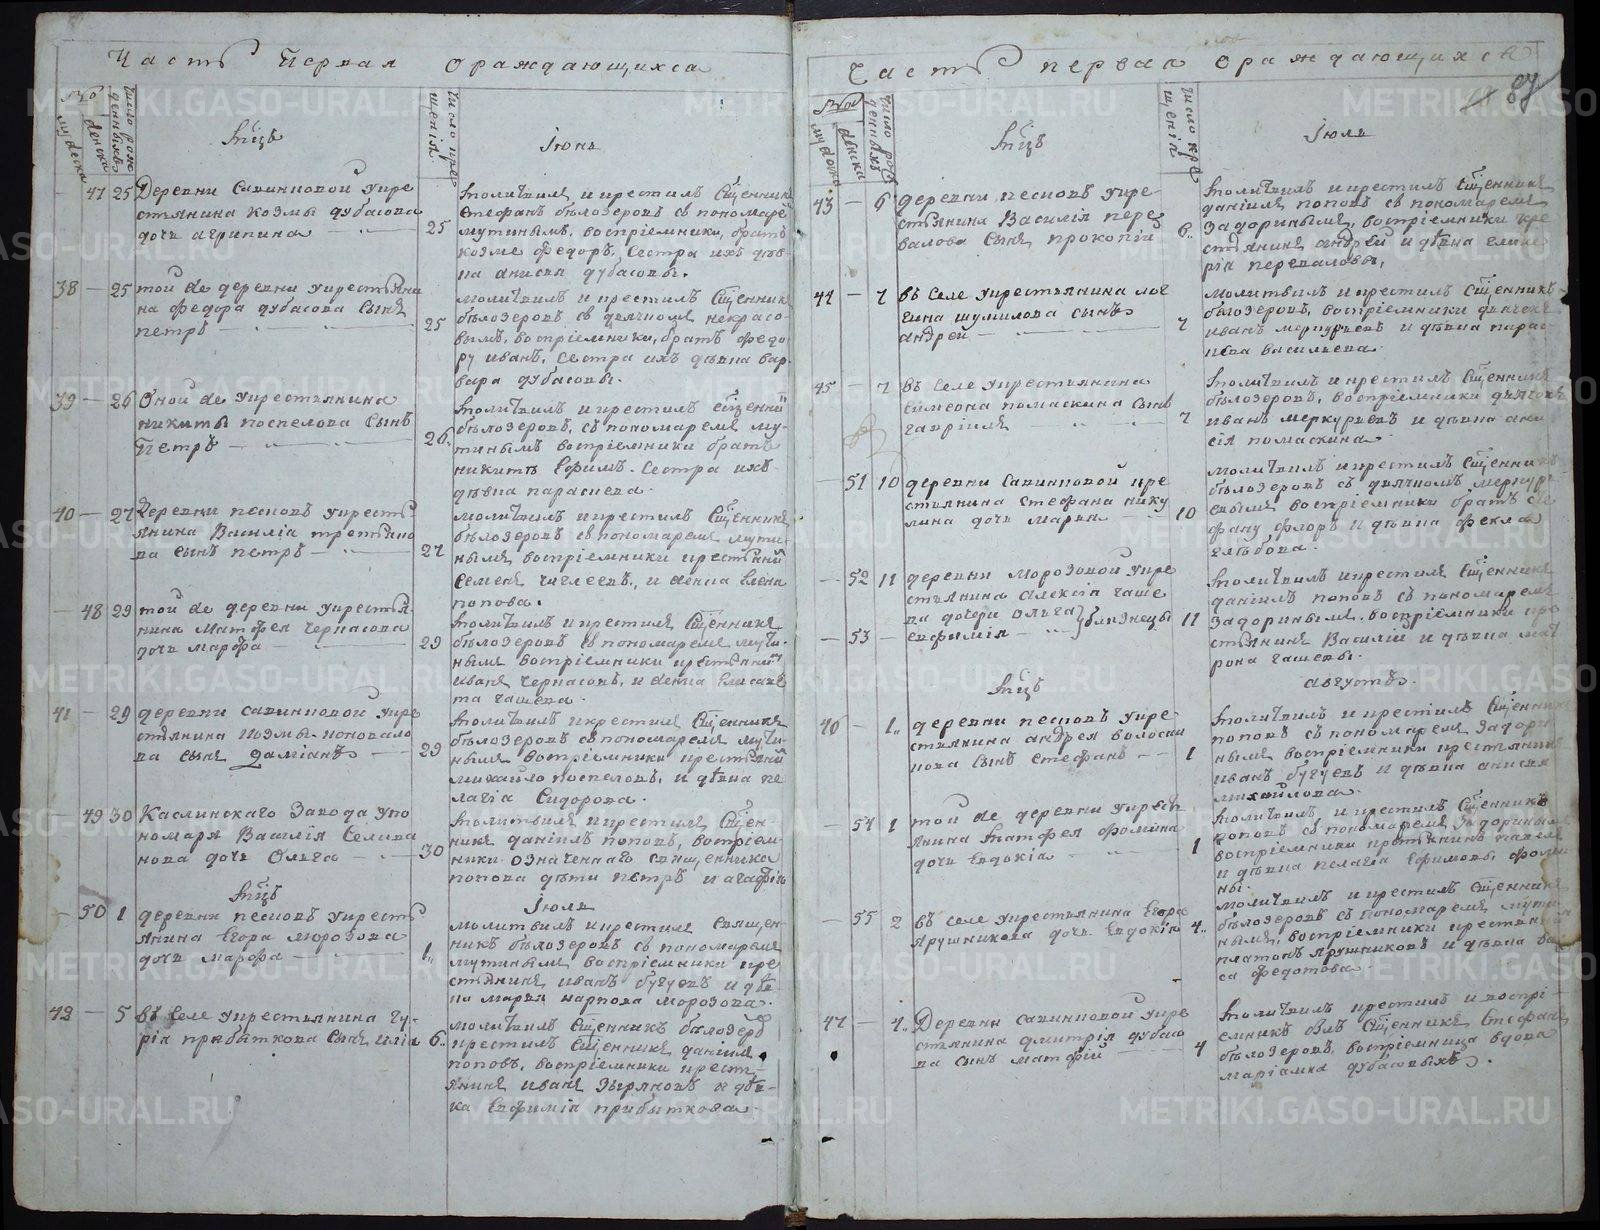 Часть Первая о раждающихся
Мцъ
Іюнь
47 25 Деревни Савинновой у кре
стьянина Козмы Дубасова
дочь Агрипина
25
молитвилъ и крестилъ Сщенникъ
Стефанъ Бѣлозеровъ съ пономаре
Мутинымъ, воспріемники, братъ
Козме Федоръ, Сестра ихъ дѣв
ка Анисья Дубасовы.
38 — 25 той же деревни у крестьяни
на Федора Дубасова Сынъ
Петръ
25
молитвилъ и крестилъ Сщенникъ
Бѣлозеровъ съ дьячкомъ Некрасо
вымъ, воспріемники, братъ Федо
ру Иванъ, Сестра ихъ дѣвка Вар
вара Дубасовы.
39 — 26 Оной же у крестьянина
Никиты Поспелова Сынъ
Петръ
26
молитвилъ и крестилъ Сщенникъ
Бѣлозеровъ, съ пономаремъ Му
тинымъ воспріемники братъ
Никитъ Ефимъ. Сестра ихъ
дѣвка Параскева
40 — 27 Деревни Песковъ у кресть
янина Василія Третьяко
ва Сынъ Петръ
27
молитвилъ и крестилъ Сщенникъ
Бѣлозеровъ съ пономаремъ Мути
нымъ воспріемники крестьянинъ
Семенъ и женка Елена
Попова.
— 48 29 той же деревни у крестья
нина Матфея Черпасова
дочь Марфа
29
молитвилъ и крестилъ Сщенникъ
Бѣлозеровъ съ пономаремъ Мути
нымъ воспріемники крестьянинъ
Иванъ Черпасовъ, и женка Елисаве
та Чащева.
41 — 29 деревни Савинновой у кре
стьянина Козмы Коновало
ва Сынъ Даміанъ
29
молитвилъ и крестилъ Сщенникъ
Бѣлозеровъ съ пономаремъ Мути
нымъ воспріемники крестьянинъ
Михайло Поспеловъ, и дѣвка Пе
лагіа Сидорова.
— 49 30 Каслинскаго Завода у по
номаря Василія Селива
нова дочь Ольга
30
молитвилъ и крестилъ Сщен
никъ Даніилъ Поповъ, воспріем
ники означеннаго священника
Попова дѣти Петръ и Агафія
Мцъ
Іюль
— 50 1 деревни Песковъ у кресть
янина Егора Морозова
дочь Марфа
1
молитвилъ и крестилъ Священ
никъ Бѣлозеровъ съ пономаремъ
Мутинымъ воспріемники кре
стьянинъ Иванъ Бугуевъ и дѣв
ка Марья Карпова Морозова.
42 — 5 въ селе у крестьянина Гу
рія Прибыткова Сынъ Илія
6
молитвилъ Сщенникъ Бѣлозеро
крестилъ Сщенникъ Даніилъ
Поповъ, воспріемники кресть
янинъ Иванъ Зыряновъ и дѣв
ка Евфимія Прибыткова
Часть первая о раждающихся
87
Мцъ
Іюль
43 — 6 деревни Песковъ у кре
стьянина Василія Пере
валова Сынъ Прокопій
6
молитвилъ и крестилъ Сщенникъ
Даніилъ Поповъ съ пономаремъ
Задоринымъ, воспріемники кре
стьянинъ Андрей и дѣвка Глике
рія Переваловы,
44 — 7 въ Селе у крестьянина Лог
гина Шумилова Сынъ
Андрей
7
молитвилъ и крестилъ Сщенникъ
Бѣлозеровъ, воспріемники дьячекъ
Иванъ Меркурьевъ и дѣвка Парас
кева Васильева
45 — 7 въ Селе у крестьянина
Симеона Помаскина Сынъ
Гавріилъ
7
молитвилъ и крестилъ Сщенникъ
Бѣлозеровъ, воспріемники дьячекъ
Иванъ Меркурьевъ и дѣвка Ани
сія Помаскина
— 51 10 деревни Савинновой кре
стьянина Стефана Нику
лина дочь Марья
10
молитвилъ и крестилъ Сщенникъ
Бѣлозеровъ съ дьячкомъ Меркурь
евымъ воспріемники братъ Сте
фану Флоръ и дѣвка Фекла
Глѣбова.
— 52 11 деревни Морозовой у кре
стьянина Алексія Чаще
ва дочери Ольга
— 53 — Евфимія близнецы
11
молитвилъ и крестилъ Сщенникъ
Даніилъ Поповъ съ пономаремъ
Задоринымъ, воспріемники кре
стьянинъ Василій и дѣвка Мат
рона Чащевы.
Мцъ
Августъ.
46 — 1 деревни Песковъ у кре
стьянина Андрея Волоски
кова Сынъ Стефанъ
1
молитвилъ и крестилъ Сщенникъ
Поповъ съ пономаремъ Задори
нымъ воспріемники крестьянинъ
Иванъ Бугуевъ и дѣвка Анисья
Михайлова
54 1 той же деревни у крест
янина Матфея Фомина
дочь Евдокіа
1
молитвилъ и крестилъ Сщенникъ
Поповъ съ пономаремъ Задоринымъ
воспріемники крестьянинъ Павелъ
и дѣвка Пелагіа Ефимовы Фоми
ны.
— 55 2 въ селе у крестьянина Егора
Ярушникова дочь Евдокія
4
молитвилъ и крестилъ Сщенникъ
Бѣлозеровъ съ пономаремъ Мути
нымъ, воспріемники крестьянинъ
Платонъ Ярушниковъ и дѣвка Ва
са Федотова
47 — 4 Деревни Савинновой у кре
стьянина Дмитрія Дубасо
ва Сынъ Матфій
4
молитвилъ крестилъ и воспрі
емникъ былъ Сщенникъ Стефанъ
Бѣлозеровъ, воспріемница вдова
Маріамна Дубасовыхъ.